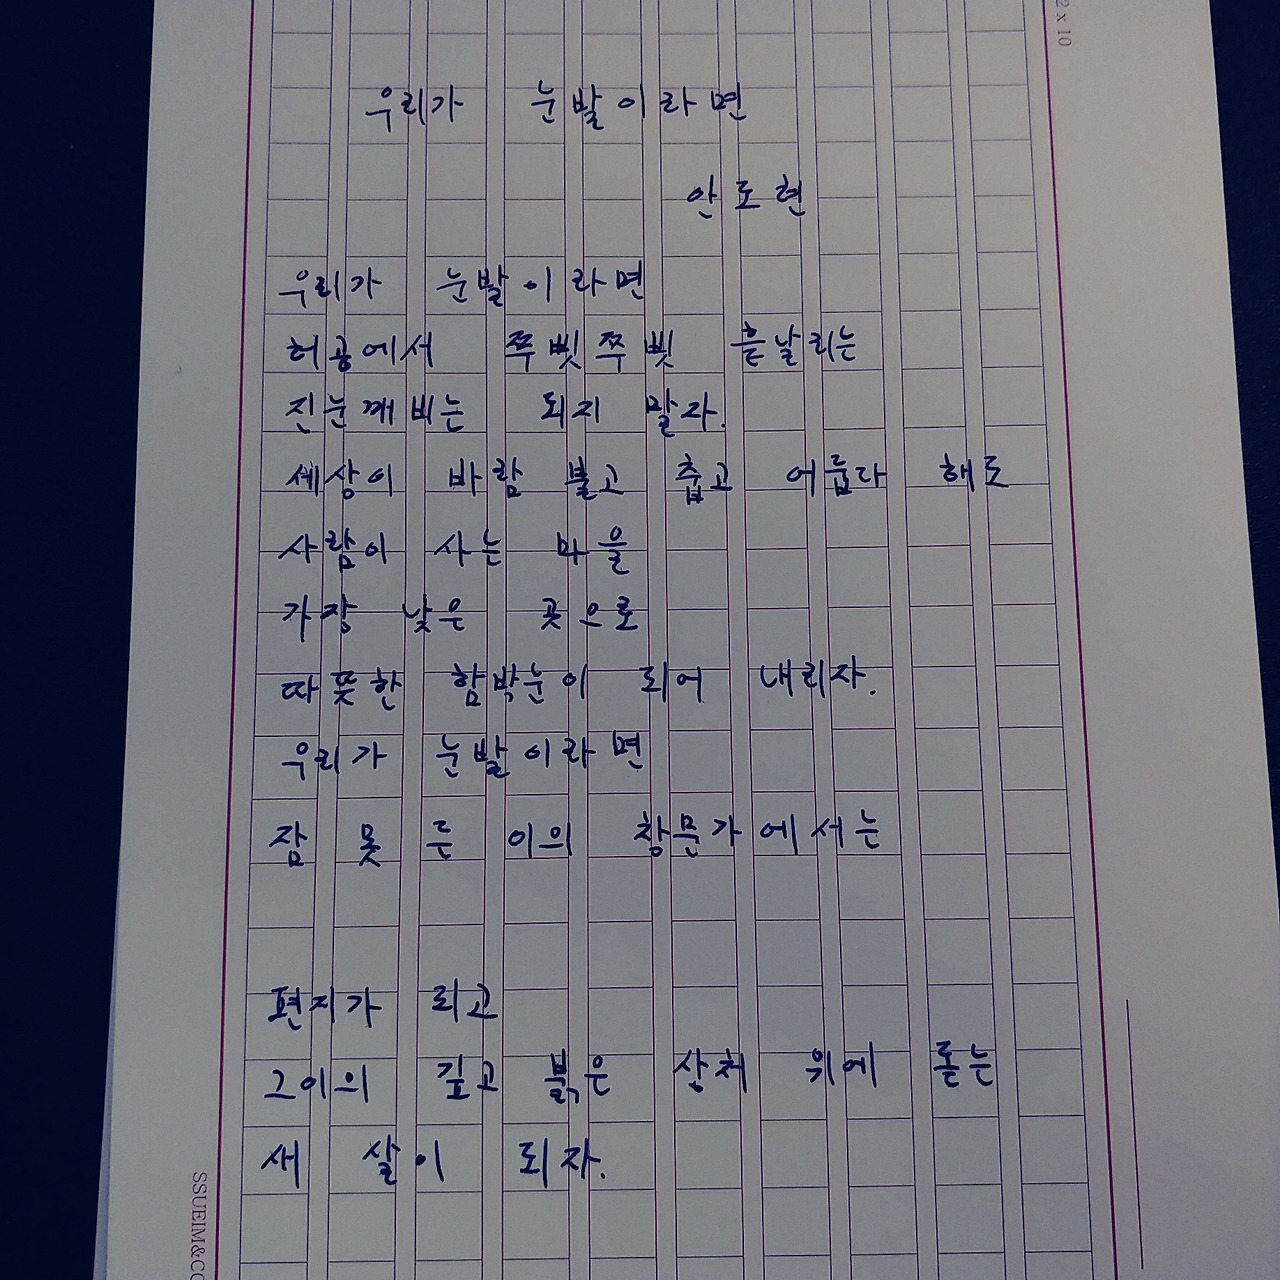 2 x 10
우리가 눈발이라면
안도현
우리가 눈발이라면
허공에서 쭈빗쭈빗 흩날리는
진눈깨비는 되지 말자.
세상이 바람 불고 춥고 어둡다 해도
사람이 사는 마을
가장 낮은 곳으로
따뜻한 함박눈이 되어 내리자.
우리가 눈발이라면
잠 못 든 이의 창문가에서는
편지가 되고
그이의 깊고 붉은 상처 위에 돋는
새 살이 되자.
SSUEIM&CO